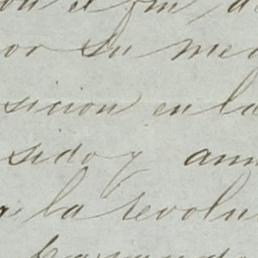 el fin d
or su me
sicion en la
sido y am
la revolu